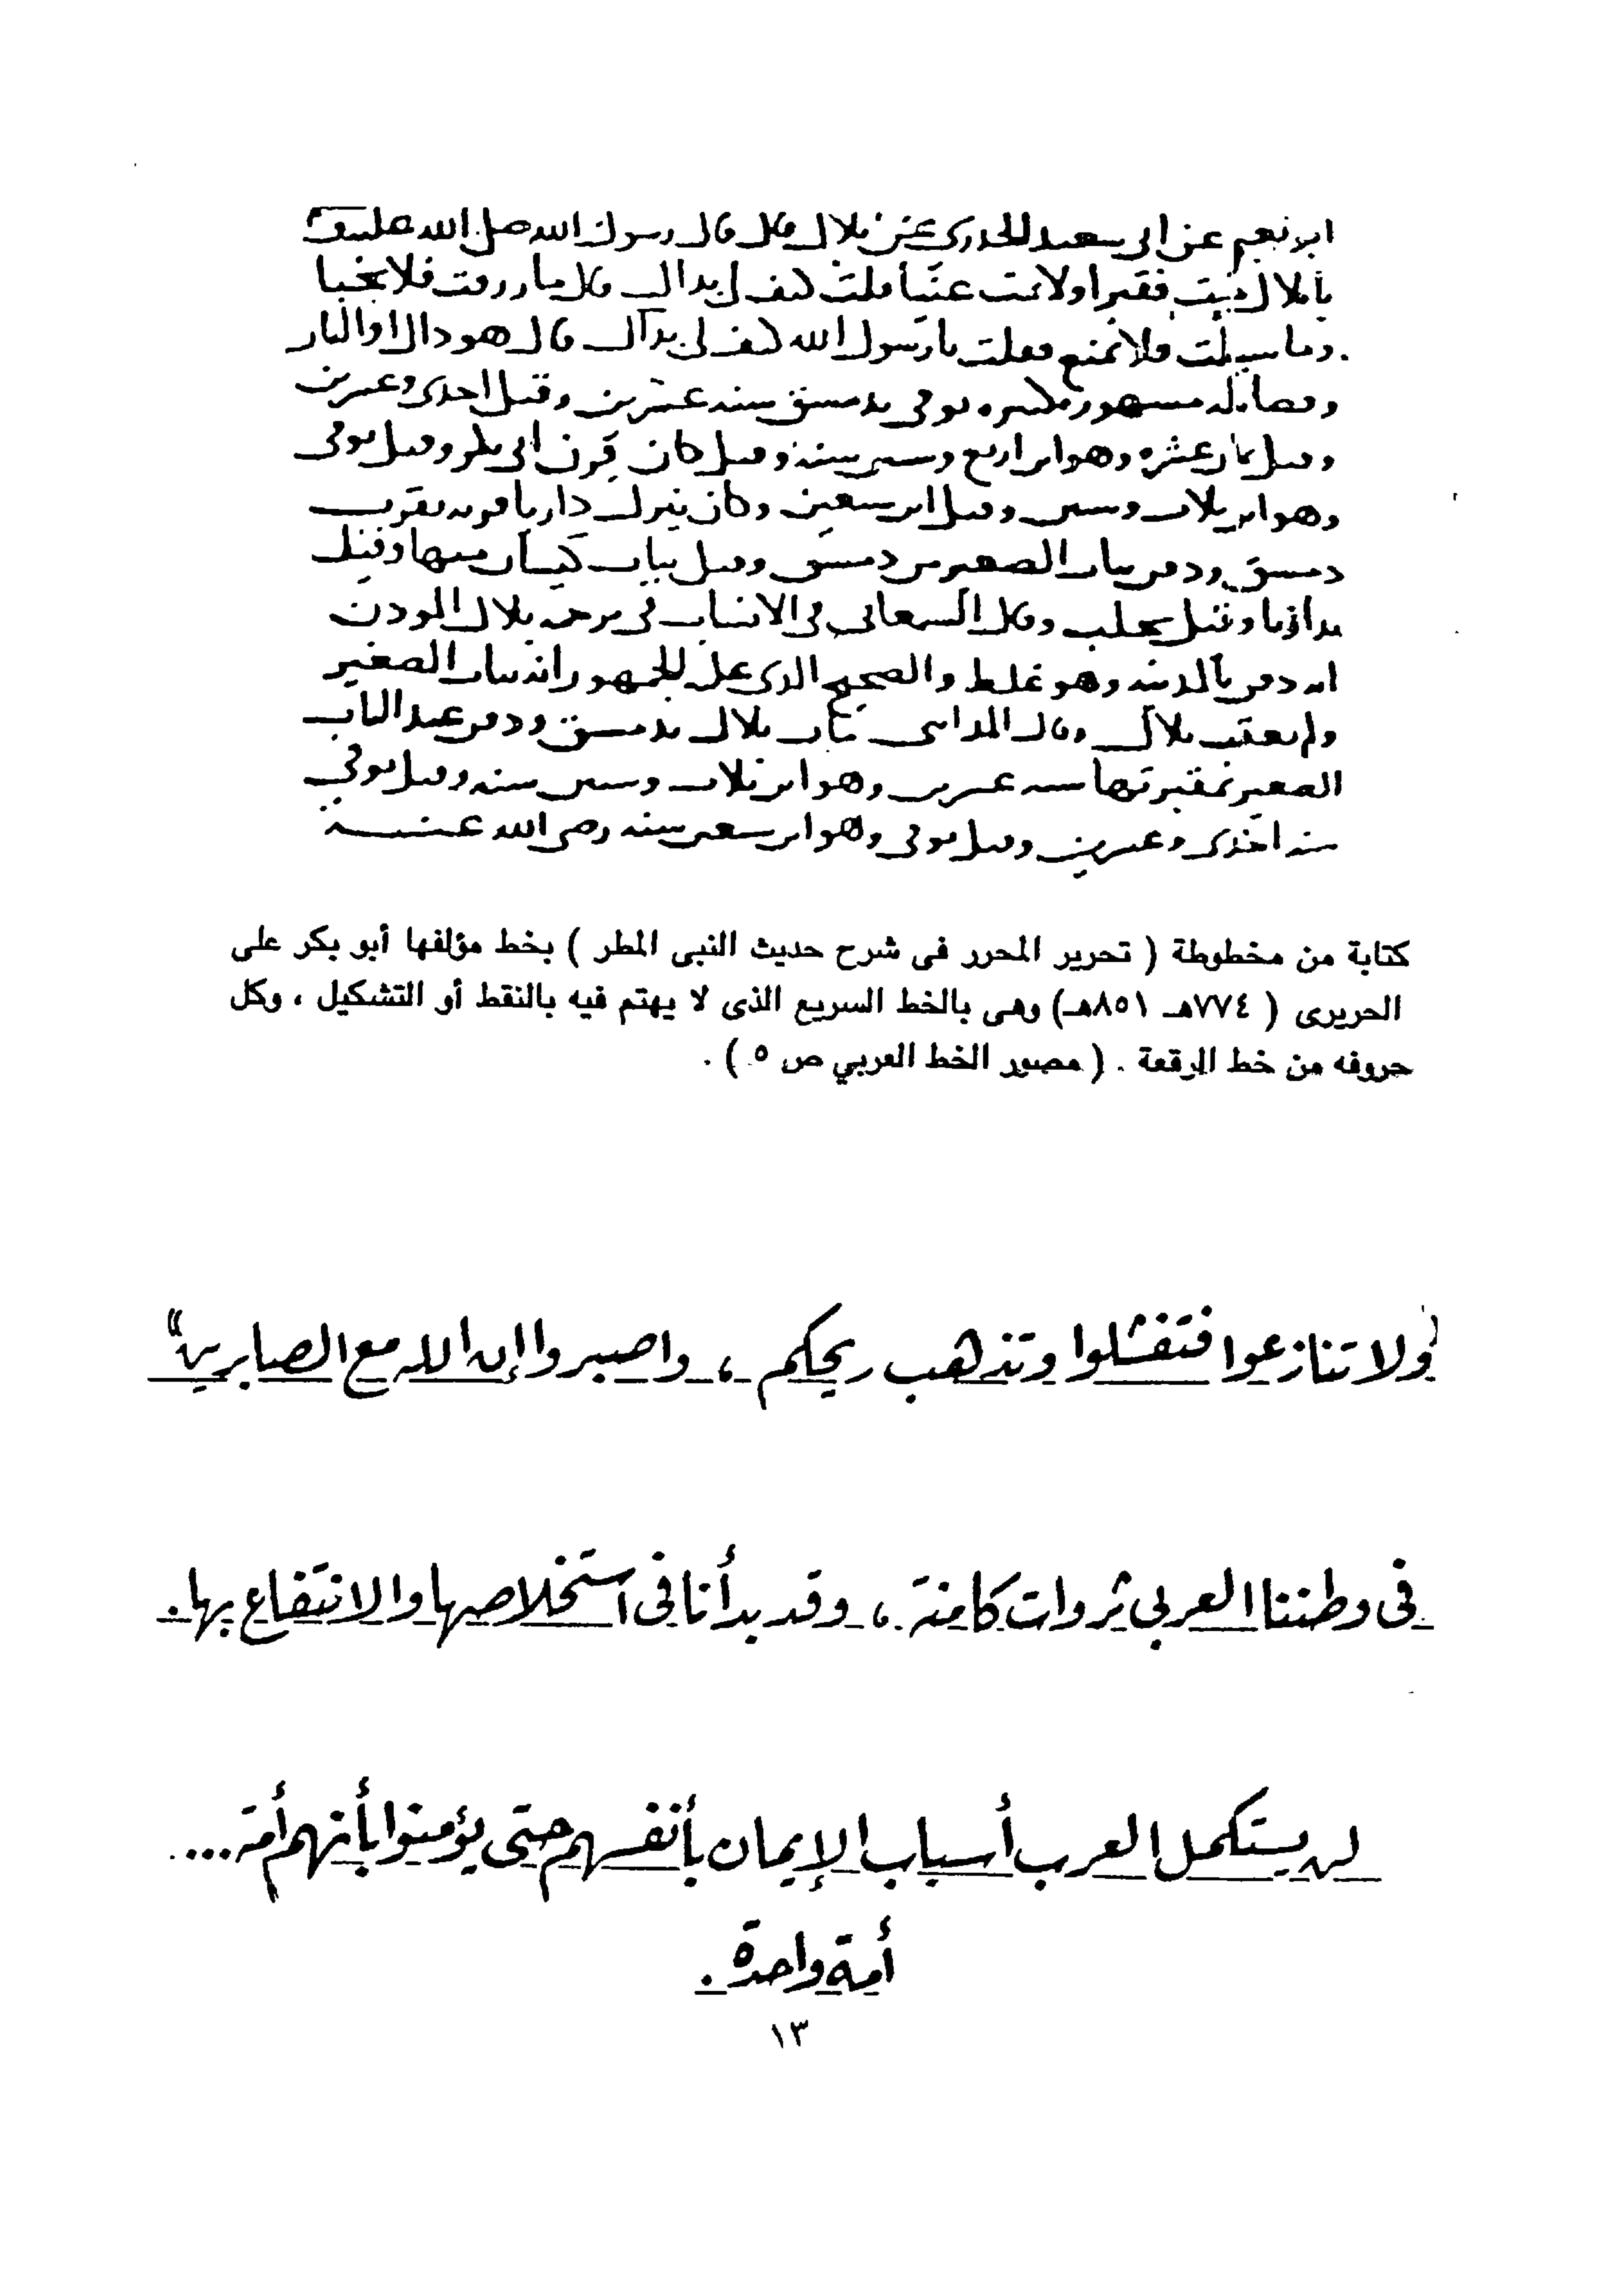 ابو نعيم عن ابى سعيد الخدرى عن بلال قال قال رسول الله صلى الله عليه
يا بلال مت فقيرا ولا تمت غنيا قلت كيف لى بذاك قال ما رزقت فلا تخبا
وما سيلت فلا تمنع فقلت يا رسول الله كيف لى بذاك قال هو ذاك او النار
وفضايله مشهوره كثيره توفى بدمشق سنه عشرين وقيل احدى وعشرين
وقيل ثمان عشره وهو ابن اربع وستين سنه وقيل كان قرن ابى بكر وقيل توفى
وهو ابن ثلاث وستين وقيل ابن سبعين وكان ينزل داريا قريه بقرب
دمشق ودفن بباب الصغير من دمشق وقيل بباب كيسان منها وقيل
بداريا وقيل بحلب وقال السمعانى فى الانساب فى ترجمه بلال الموذن
انه دفن بالمدينه وهو غلط والصحيح الذى عليه الجمهور انه بباب الصغير
ولم يعقب بلال وقال المداينى مات بلال بدمشق ودفن عند الباب
الصغير بمقبرتها سنه عشرين وهو ابن ثلاث وستين سنه وقيل توفي
سنه احدى وعشرين وقيل توفى وهو ابن سبعين سنه رضى الله عنه
كتابة من مخطوطة ( تحرير المحرر فى شرح حديث النبى المطر ) بخط مؤلفها أبو بكر على
الحريرى ( ٧٧٤هـ ٨٥١هـ) وهى بالخط السريع الذى لا يهتم فيه بالنقط أو التشكيل ، وكل
حروفه من خط الرقعة . ( مصور الخط العربي ص ٥ ) .
ولا تنازعوا فتفشلوا وتذهب ريحكم ، واصبروا إن الله مع الصابرين"
فى وطننا العربى ثروات كامنة ، وقد بدأنا فى استخلاصها والانتفاع بها .
لن يستكمل العرب أسباب الإيمان بأنفسهم حتى يؤمنوا بأنهم أمة ...
أمة واحدة .
١٣